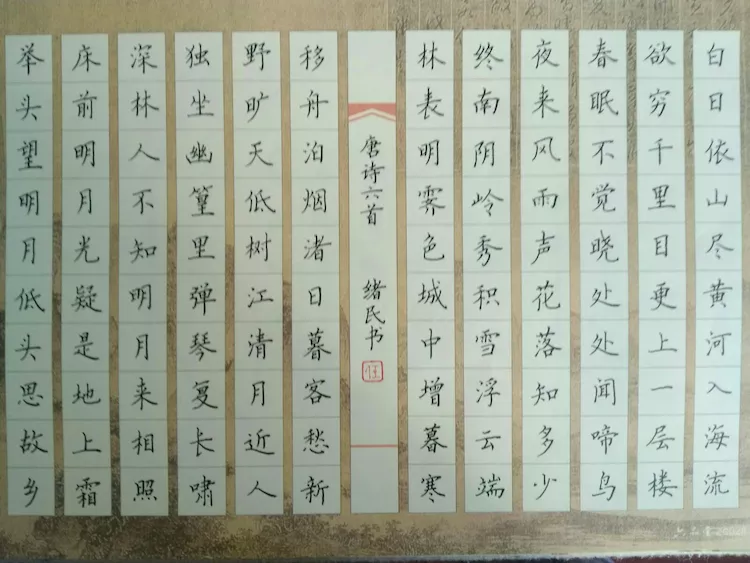 白日依山尽黄河入海流
欲穷千里目更上一层楼
春眠不觉晓处处闻啼鸟
夜来风雨声花落知多少
终南阴岭秀积雪浮云端
林表明霁色城中增暮寒
唐诗六首 绪民书
移舟泊烟渚日暮客愁新
野旷天低树江清月近人
独坐幽篁里弹琴复长啸
深林人不知明月来相照
床前明月光疑是地上霜
举头望明月低头思故乡